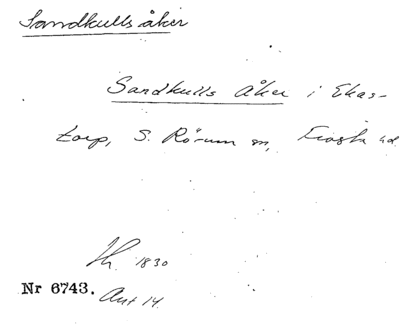 Sandkulls åker
Sandkulls åker i Ekas-
torp, S. Rörum sn, Frosta hd.
1830
Nr 6743. Ant 14